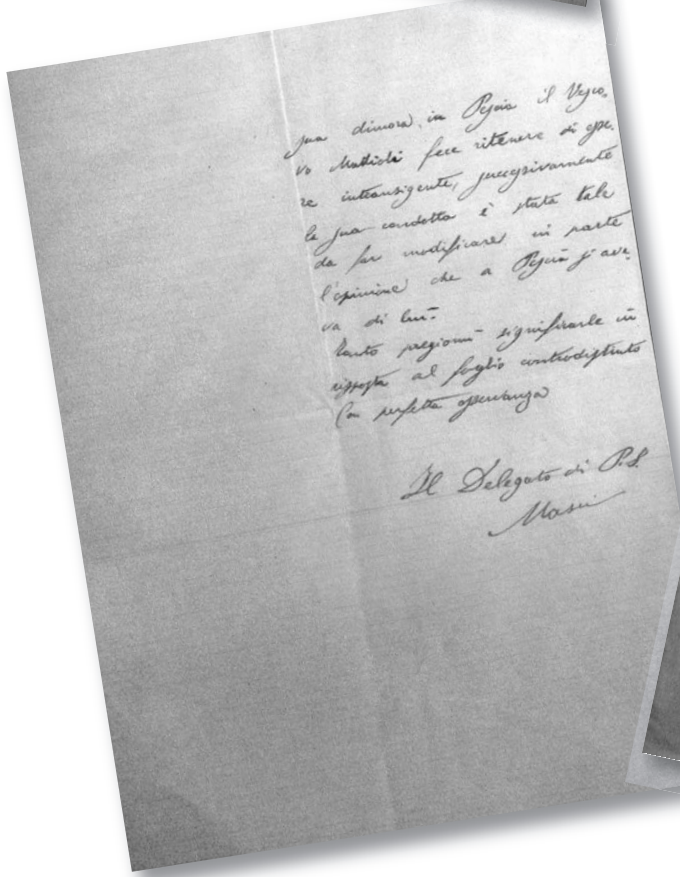 sua dimora in Pescia il Vesco-
vo Mattioli fece ritenere di esse-
re intransigente, successivamente
la sua condotta è stata tale
da far modificare in parte
l'opinione che a Pescia si ave-
va di lui.
Tanto pregiomi significarle in
risposta al foglio controdistinto
Con perfetta osservanza
Il Delegato di P.S.
Masini